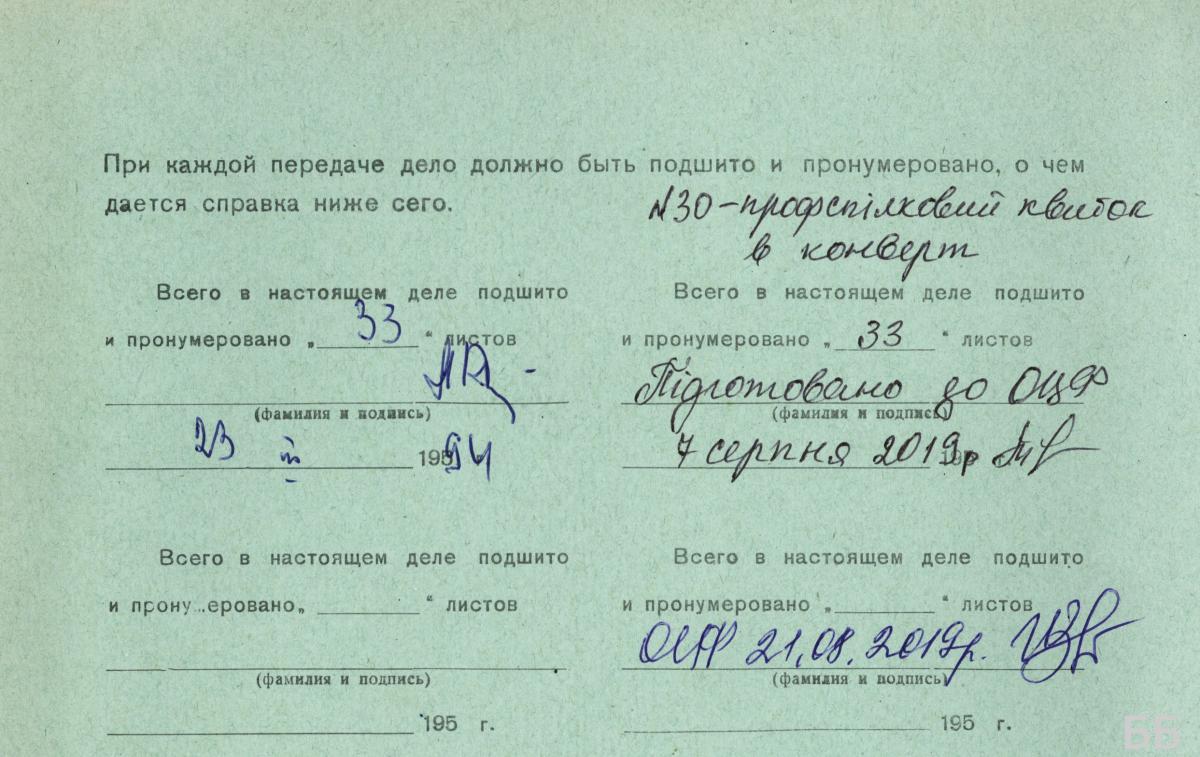 При каждой передаче дело должно быть подшито и пронумеровано, о чем
дается справка ниже сего.
№30 – профспілковий квиток
в конверт
Всего в настоящем деле подшито
и пронумеровано „ 33 “ листов
(фамилия и подпись)
23 III 1994
Всего в настоящем деле подшито
и пронумеровано „ 33 “ листов
Підготовано до ОЦФ
(фамилия и подпись)
7 серпня 2019р
Всего в настоящем деле подшито
и прону...еровано„ “ листов
(фамилия и подпись)
195 г.
Всего в настоящем деле подшито
и пронумеровано „ “ листов
ОЦФ 21.08.2019р.
(фамилия и подпись)
195 г.
ББ